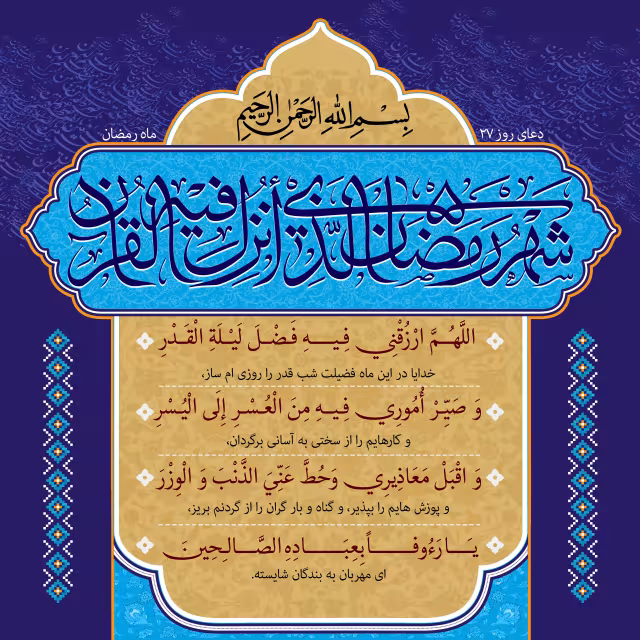 بِسْمِ اللهِ الرَّحْمٰنِ الرَّحِيمِ
دعای روز ۲۷
ماه رمضان
شَهْرُ رَمَضَانَ الَّذِي أُنْزِلَ فِيهِ الْقُرْآنُ
اللَّهُمَّ ارْزُقْنِي فِيهِ فَضْلَ لَيْلَةِ الْقَدْرِ
خدایا در این ماه فضیلت شب قدر را روزی ام ساز،
وَ صَيِّرْ أُمُورِي فِيهِ مِنَ الْعُسْرِ إِلَى الْيُسْرِ
و کارهایم را از سختی به آسانی برگردان،
وَ اقْبَلْ مَعَاذِيرِي وَحُطَّ عَنِّيَ الذَّنْبَ وَ الْوِزْرَ
و پوزش هایم را بپذیر، و گناه و بار گران را از گردنم بریز،
يَا رَءُوفاً بِعِبَادِهِ الصَّالِحِينَ
ای مهربان به بندگان شایسته.